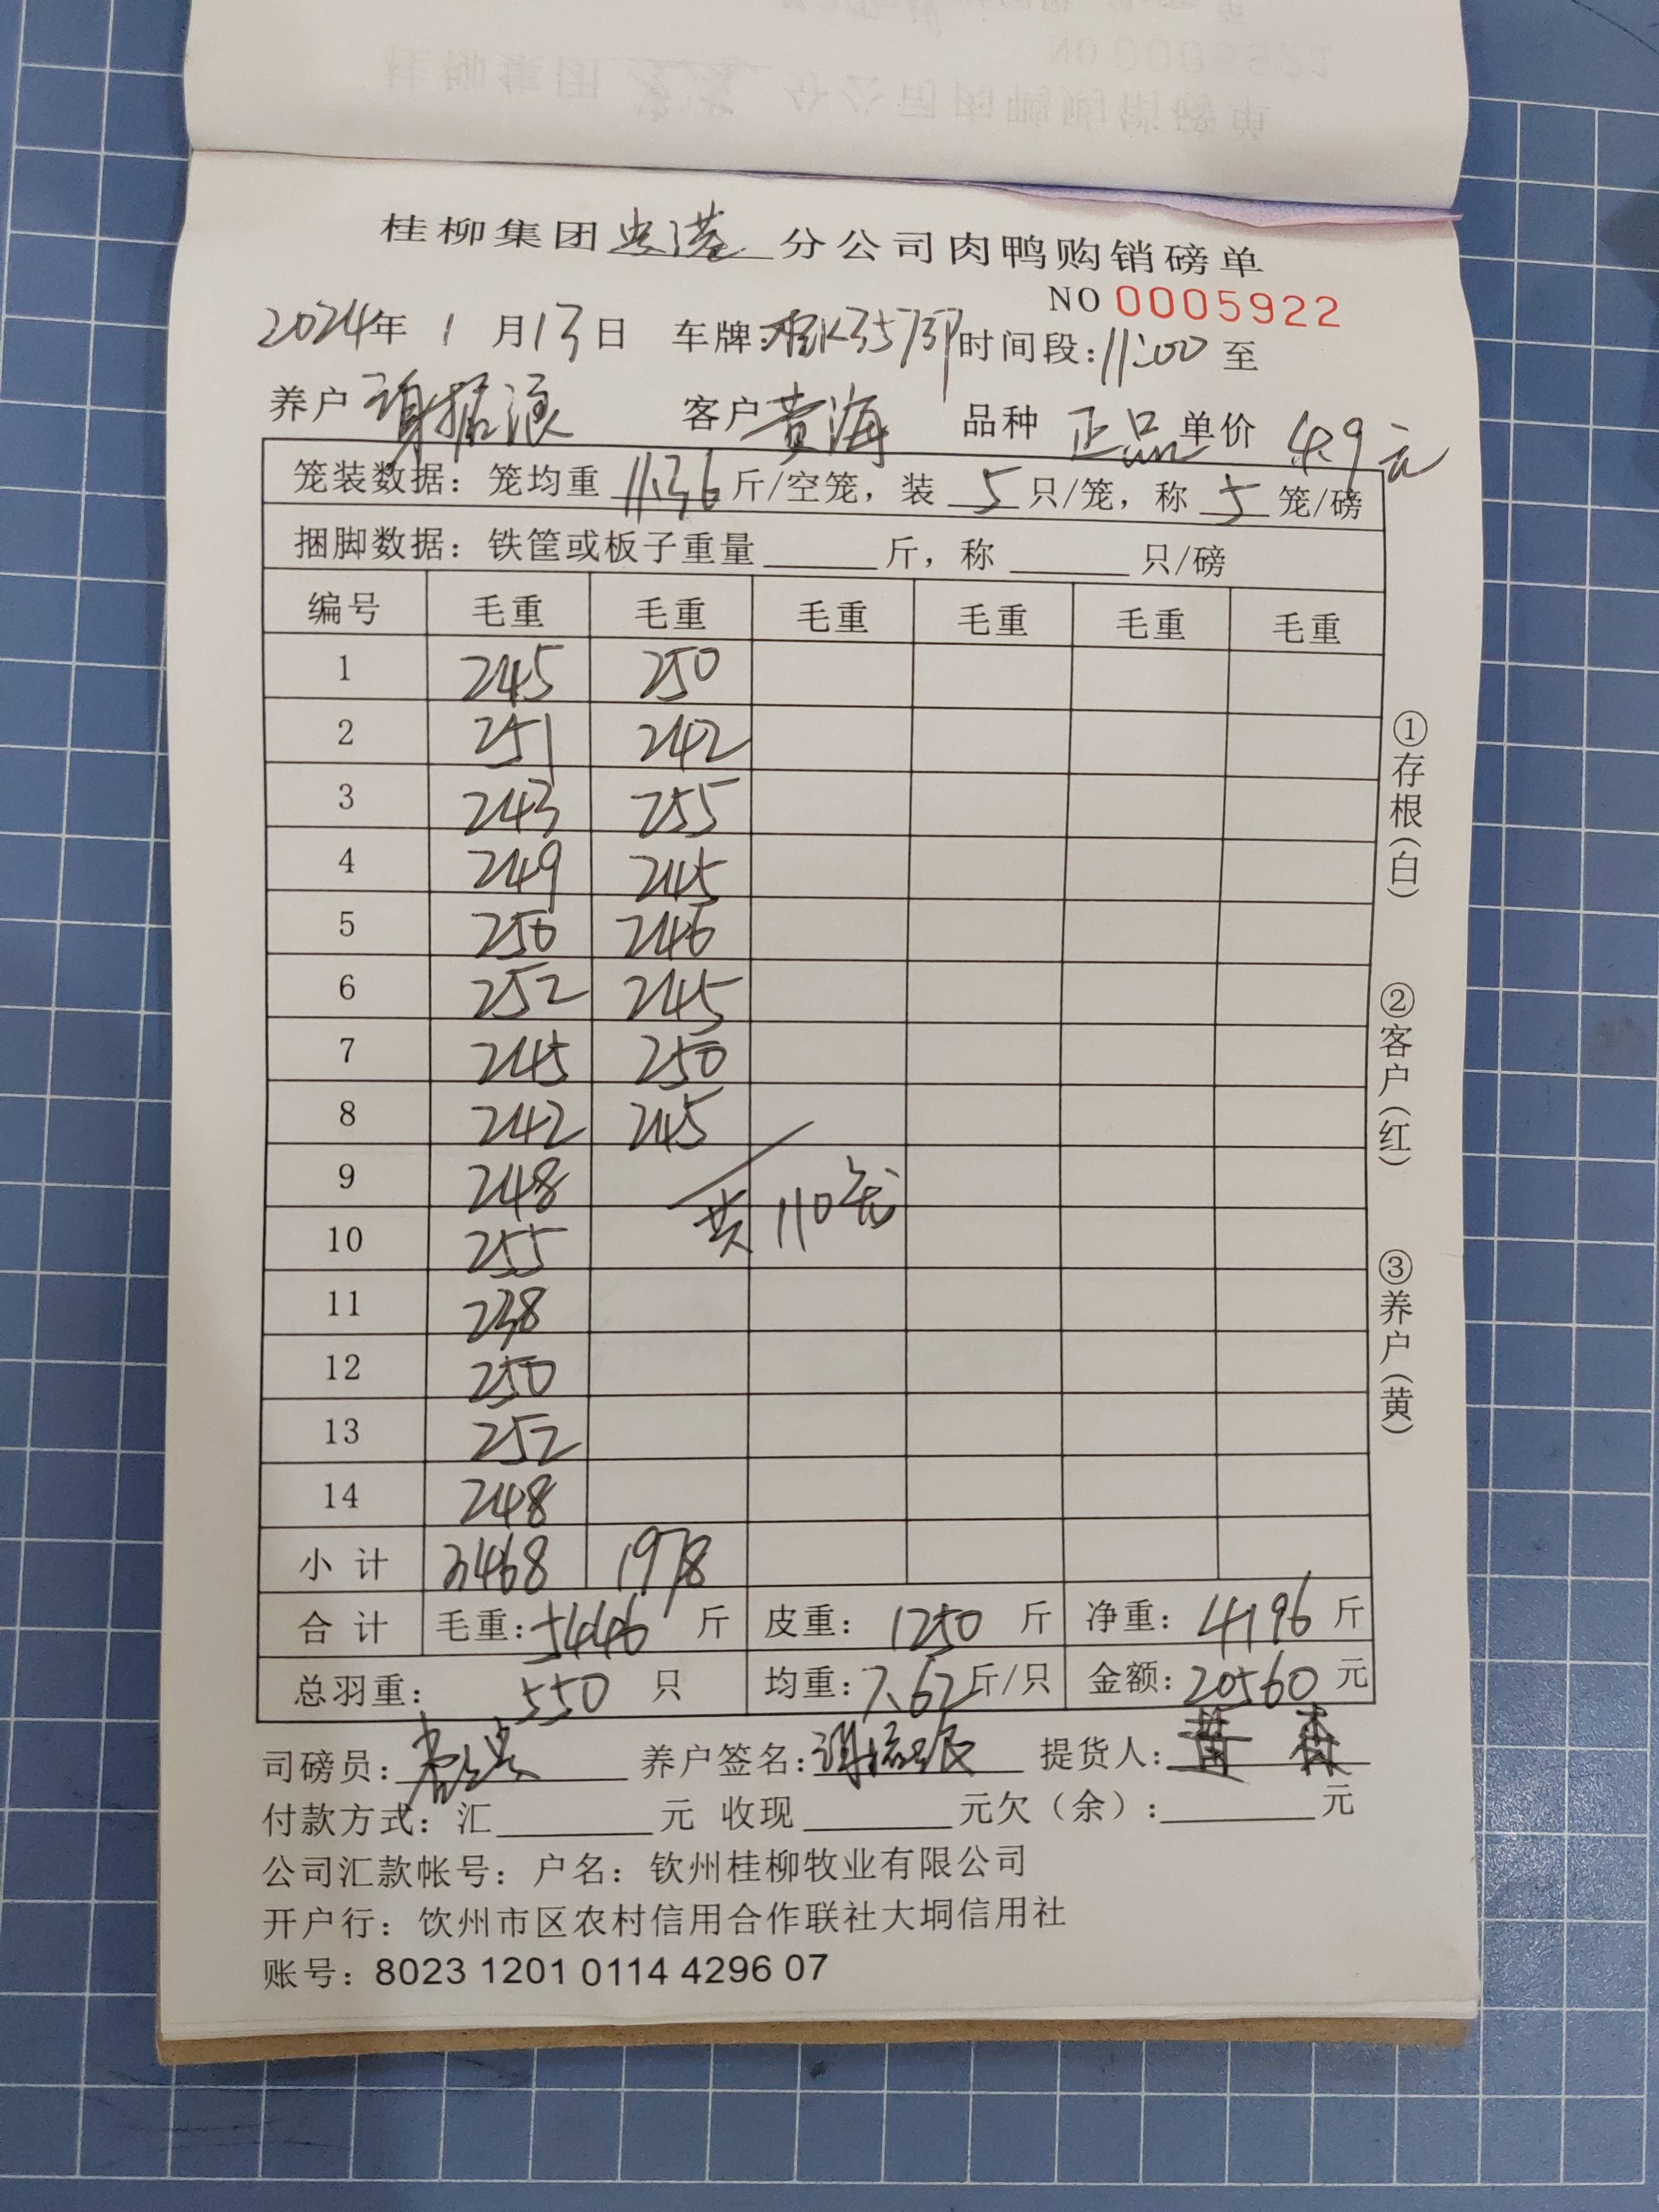 桂柳集团 分公司肉鸭购销磅单
NO 0005922
2024年 1 月13日 车牌: 时间段:11:00 至
养户 客户 黄海 品种 正品 单价 4.9元
笼装数据：笼均重 11.36 斤/空笼，装 5 只/笼，称 5 笼/磅
捆脚数据：铁筐或板子重量 斤，称 只/磅
编号 毛重 毛重 毛重 毛重 毛重 毛重
1 245 250
2 251 242
3 243 255
4 249 245
5 250 246
6 252 245
7 245 250
8 242 245
9 248
共110笼
10 255
11 238
12 250
13 252
14 248
小 计 3468 1978
合 计 毛重:5446 斤 皮重: 1250 斤 净重: 4196 斤
总羽重: 550 只 均重:7.62斤/只 金额:20560元
司磅员: 养户签名: 提货人:
付款方式：汇 元 收现 元欠（余）: 元
公司汇款帐号：户名：钦州桂柳牧业有限公司
开户行：饮州市区农村信用合作联社大垌信用社
账号：8023 1201 0114 4296 07
①存根(白)
②客户(红)
③养户(黄)